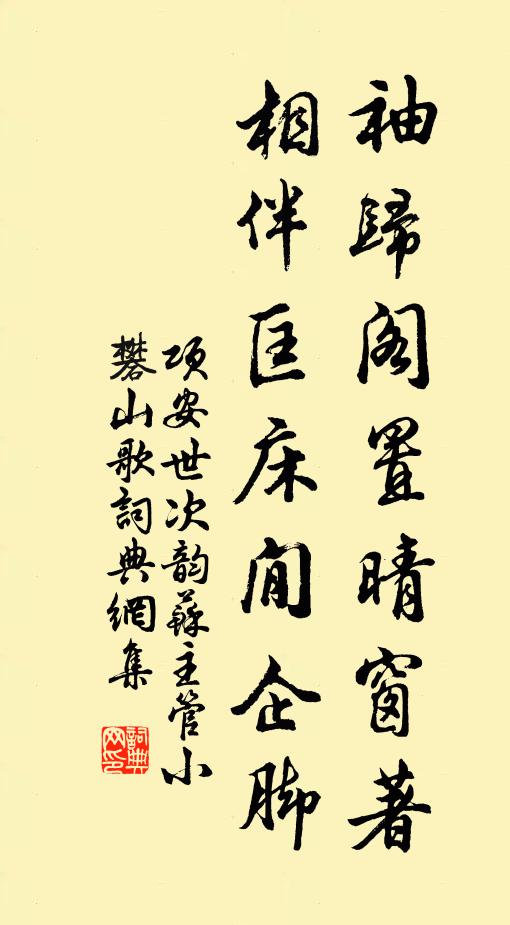 袖歸阁置晴窗著
相伴匡床閒企脚
项安世次韵蘇主管小
礬山歌詞典網集
詞典网印